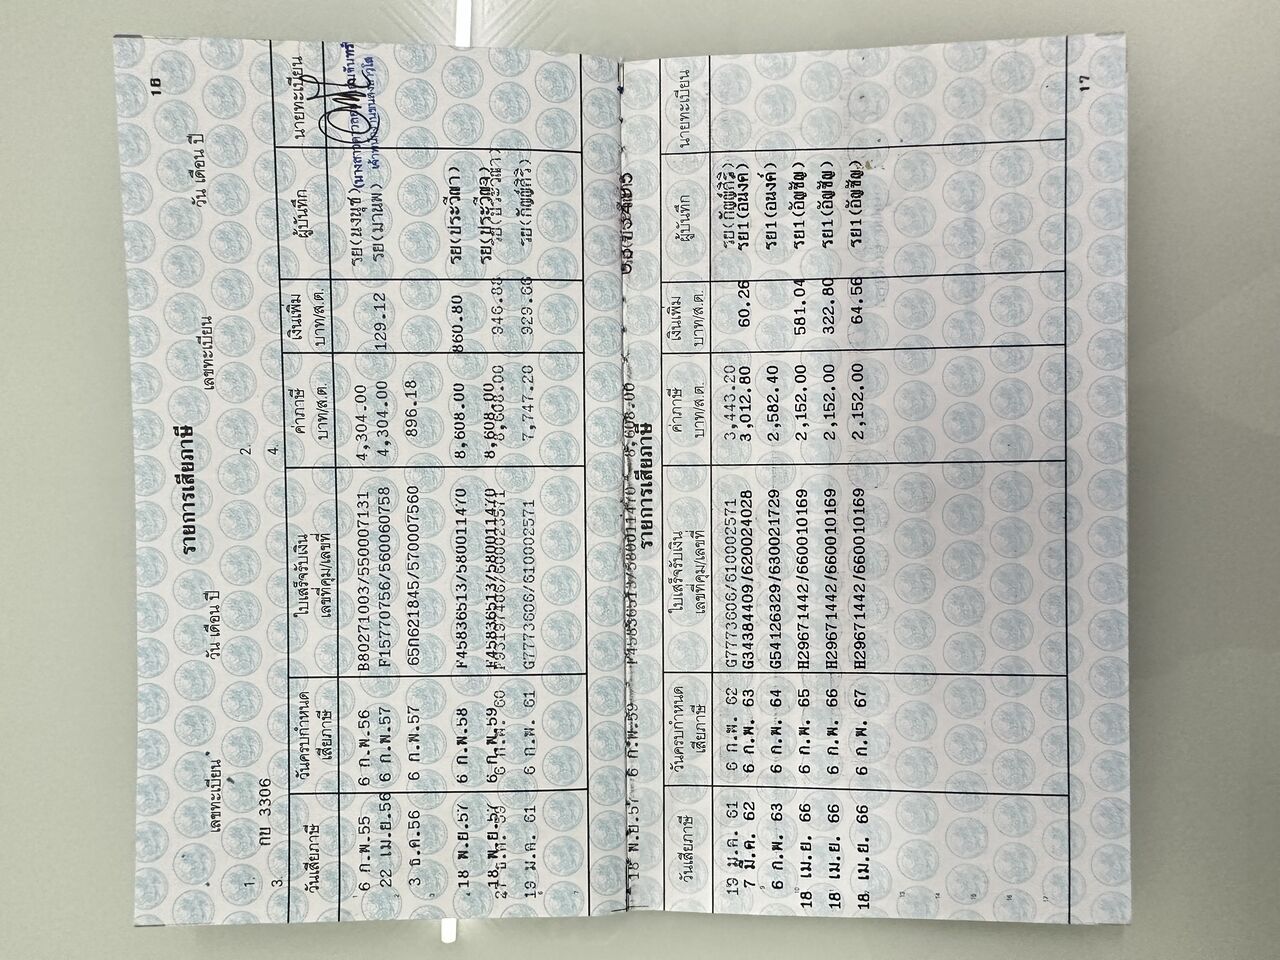 16
รายการเสียภาษี
เลขทะเบียน วัน เดือน ปี เลขทะเบียน วัน เดือน ปี
1. 2.
กย 3306
3. 4.
วันเสียภาษี วันครบกำหนดเสียภาษี ใบเสร็จรับเงิน เลขที่คุม/เลขที่ ค่าภาษี บาท/ส.ต. เงินเพิ่ม บาท/ส.ต. ผู้บันทึก นายทะเบียน
1 6 ก.พ.55 6 ก.พ.56 B80271003/550007131 4,304.00 รย(นงนุช)
2 22 เม.ย.56 6 ก.พ.57 F15770756/560060758 4,304.00 129.12 รย(มานพ)
3 3 ธ.ค.56 6 ก.พ.57 65ก621845/570007560 896.18
4 18 พ.ย.57 6 ก.พ.58 F45836513/580011470 8,608.00 860.80 รย(ประวีณา)
18 พ.ย.57 6 ก.พ.59 F45836513/580011470 8,608.00 รย(ประวีณา)
6 ก.พ. 60 8,608.00 946.88 รย(ประวีณา)
6 19 ม.ค. 61 6 ก.พ. 61 G7773606/610002571 7,747.20 929.66 รย(กัญญ์ศิริ)
7
18 พ.ย.57 6 ก.พ.59 F45836513/580011470 8,608.00
รายการเสียภาษี
วันเสียภาษี วันครบกำหนดเสียภาษี ใบเสร็จรับเงิน เลขที่คุม/เลขที่ ค่าภาษี บาท/ส.ต. เงินเพิ่ม บาท/ส.ต. ผู้บันทึก นายทะเบียน
19 ม.ค. 61 6 ก.พ. 62 G7773606/610002571 3,443.20 รย(กัญญ์ศิริ)
7 มี.ค. 62 6 ก.พ. 63 G34384409/620024028 3,012.80 60.26 รย1(อนงค์)
9 6 ก.พ. 63 6 ก.พ. 64 G54126329/630021729 2,582.40 รย1(อนงค์)
10 18 เม.ย. 66 6 ก.พ. 65 H29671442/660010169 2,152.00 581.04 รย1(อัญชัญ)
18 เม.ย. 66 6 ก.พ. 66 H29671442/660010169 2,152.00 322.80 รย1(อัญชัญ)
18 เม.ย. 66 6 ก.พ. 67 H29671442/660010169 2,152.00 64.56 รย1(อัญชัญ)
13
14
15
16
17
17